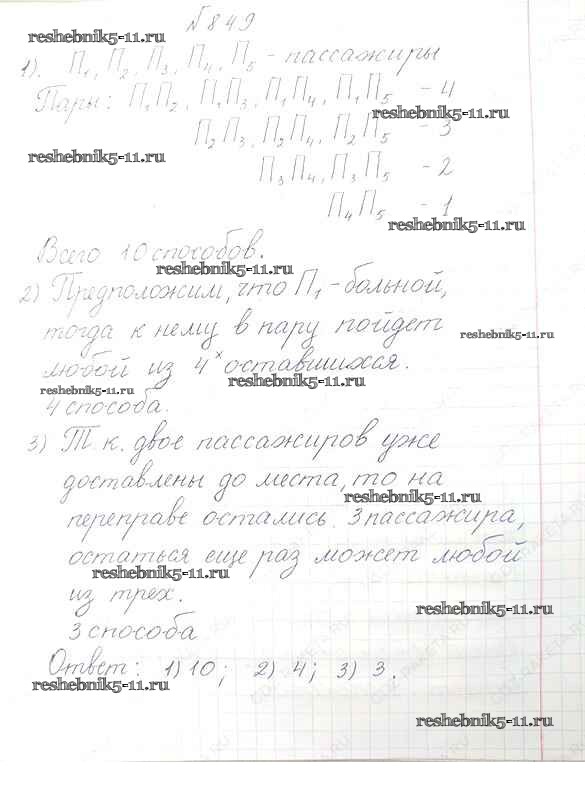 №849
reshebnik5-11.ru
1). П₁, П₂, П₃, П₄, П₅ - пассажиры
Пары: П₁П₂, П₁П₃, П₁П₄, П₁П₅ - 4
reshebnik5-11.ru
П₂П₃, П₂П₄, П₂П₅ - 3
reshebnik5-11.ru
П₃П₄, П₃П₅ - 2
П₄П₅ - 1
reshebnik5-11.ru
Всего 10 способов.
reshebnik5-11.ru
2) Предположим, что П₁ - больной,
тогда к нему в пару пойдет
reshebnik5-11.ru
любой из 4ˣ оставшихся.
reshebnik5-11.ru
reshebnik5-11.ru
4 способа.
3) Т.к. двое пассажиров уже
доставлены до места, то на
reshebnik5-11.ru
переправе остались 3 пассажира,
остаться еще раз может любой
reshebnik5-11.ru
из трех.
reshebnik5-11.ru
3 способа
Ответ: 1) 10; 2) 4; 3) 3.
reshebnik5-11.ru
reshebnik5-11.ru